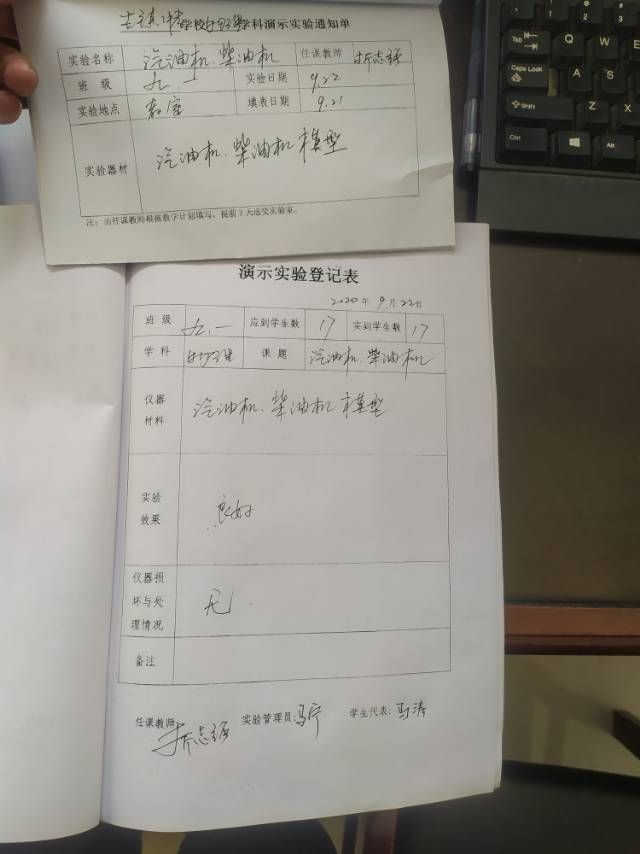 学校物理学科演示实验通知单
实验名称 汽油机、柴油机 任课教师 乔志强
班 级 九、一 实验日期 9.22
实验地点 教室 填表日期 9.21
实验器材 汽油机、柴油机模型
注：由任课教师根据教学计划填写，提前3天送交实验室。
演示实验登记表
2020年 9月22日
班 级 九、一 应到学生数 17 实到学生数 17
学 科 物理 课 题 汽油机、柴油机
仪器
材料 汽油机、柴油机模型
实验
效果 良好
仪器损
坏与处
理情况 无
备注
任课教师 乔志强 实验管理员: 马宁 学生代表: 马涛
Tab Q W E
Caps Lock A S
Shift Z X
Ctrl Alt